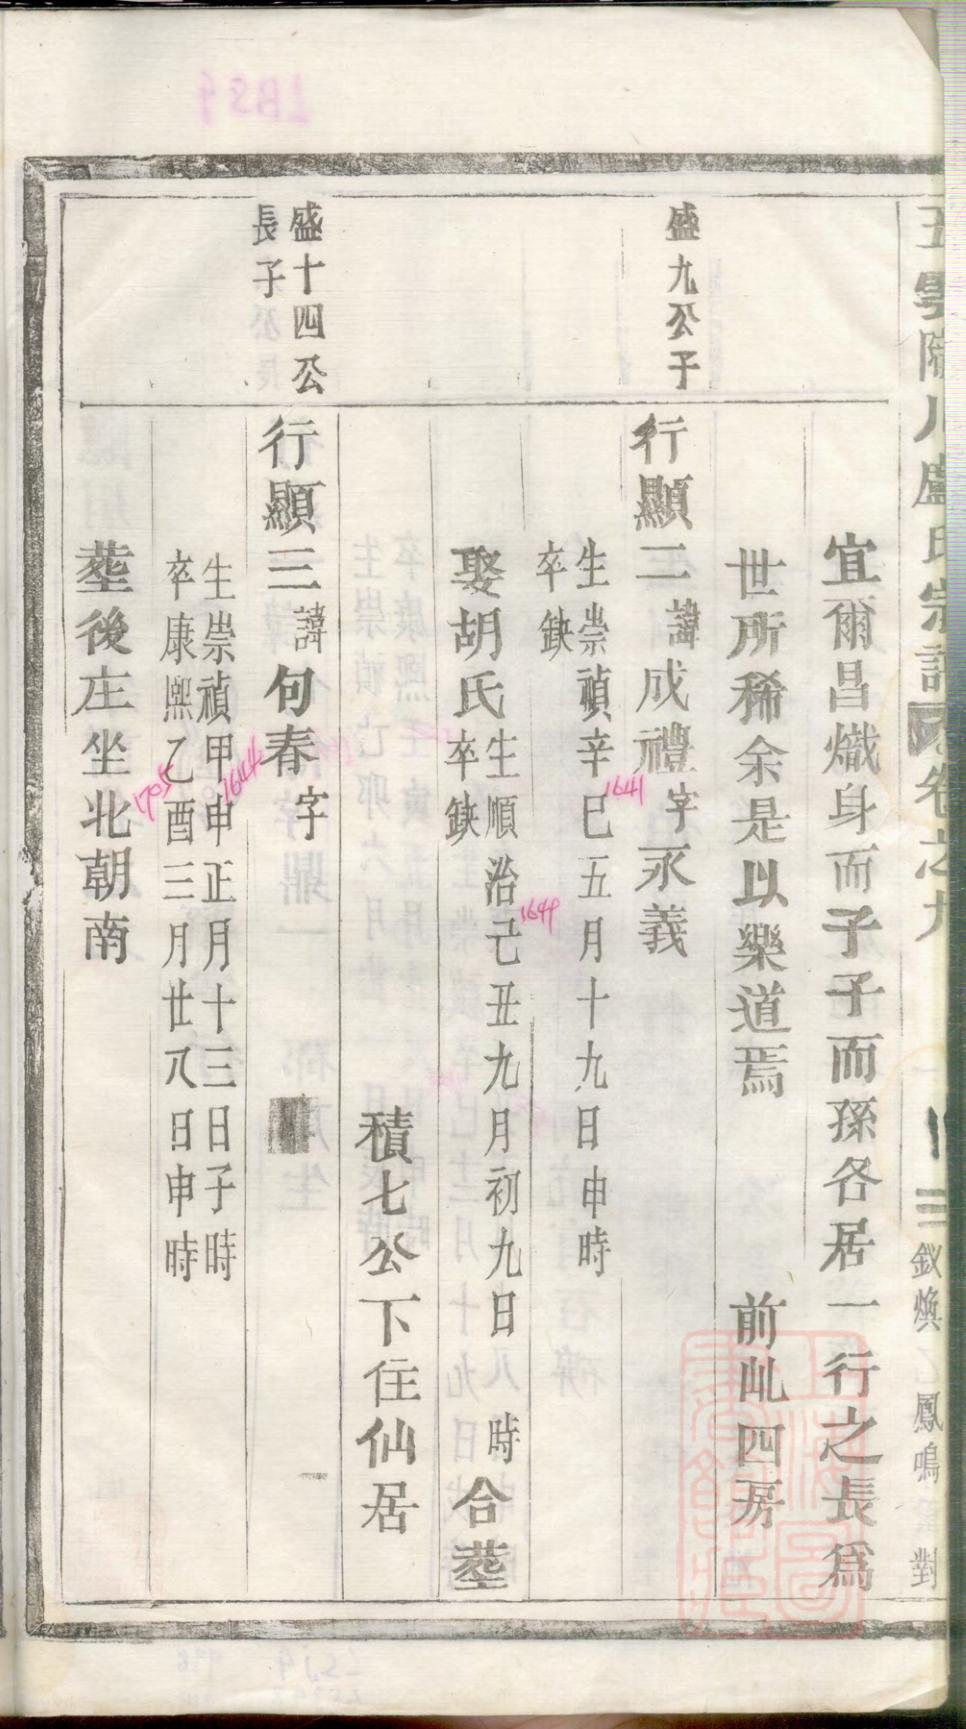 五雲陳川盧氏宗譜 卷之九 三 鳳鳴 對
宜爾昌熾身而子子而孫各居一行之長爲
世所稀余是以樂道焉 前此四房
盛九公子
行顯二諱成禮字永義
生崇禎辛巳五月十九日申時
1641
卒缺
娶胡氏
生順治己丑九月初九日 時
1649
卒缺
合塟
積七公下住仙居
盛十四公
長子
行顯三諱句春字
生崇禎甲申正月十三日子時
1644
卒康熙乙酉三月廿八日申時
1705
塟後庄坐北朝南